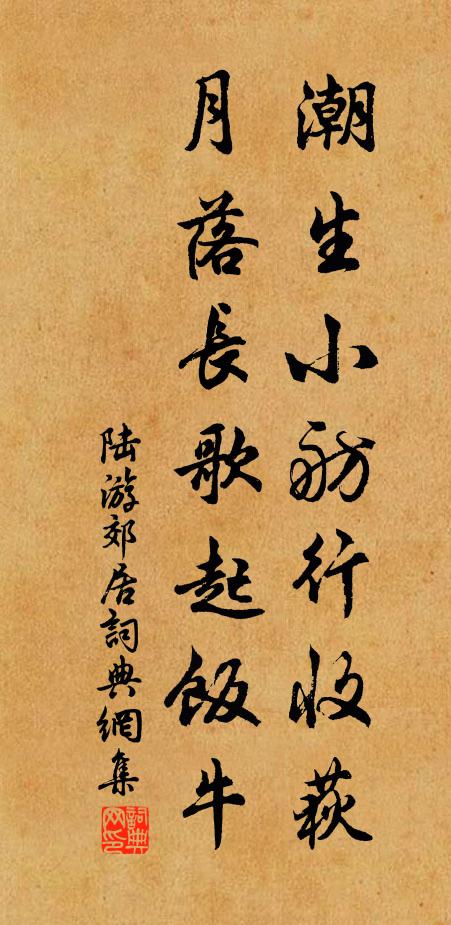 潮生小舫行收荻
月落長歌起飯牛
陆游郊居詞典網集
詞典网印